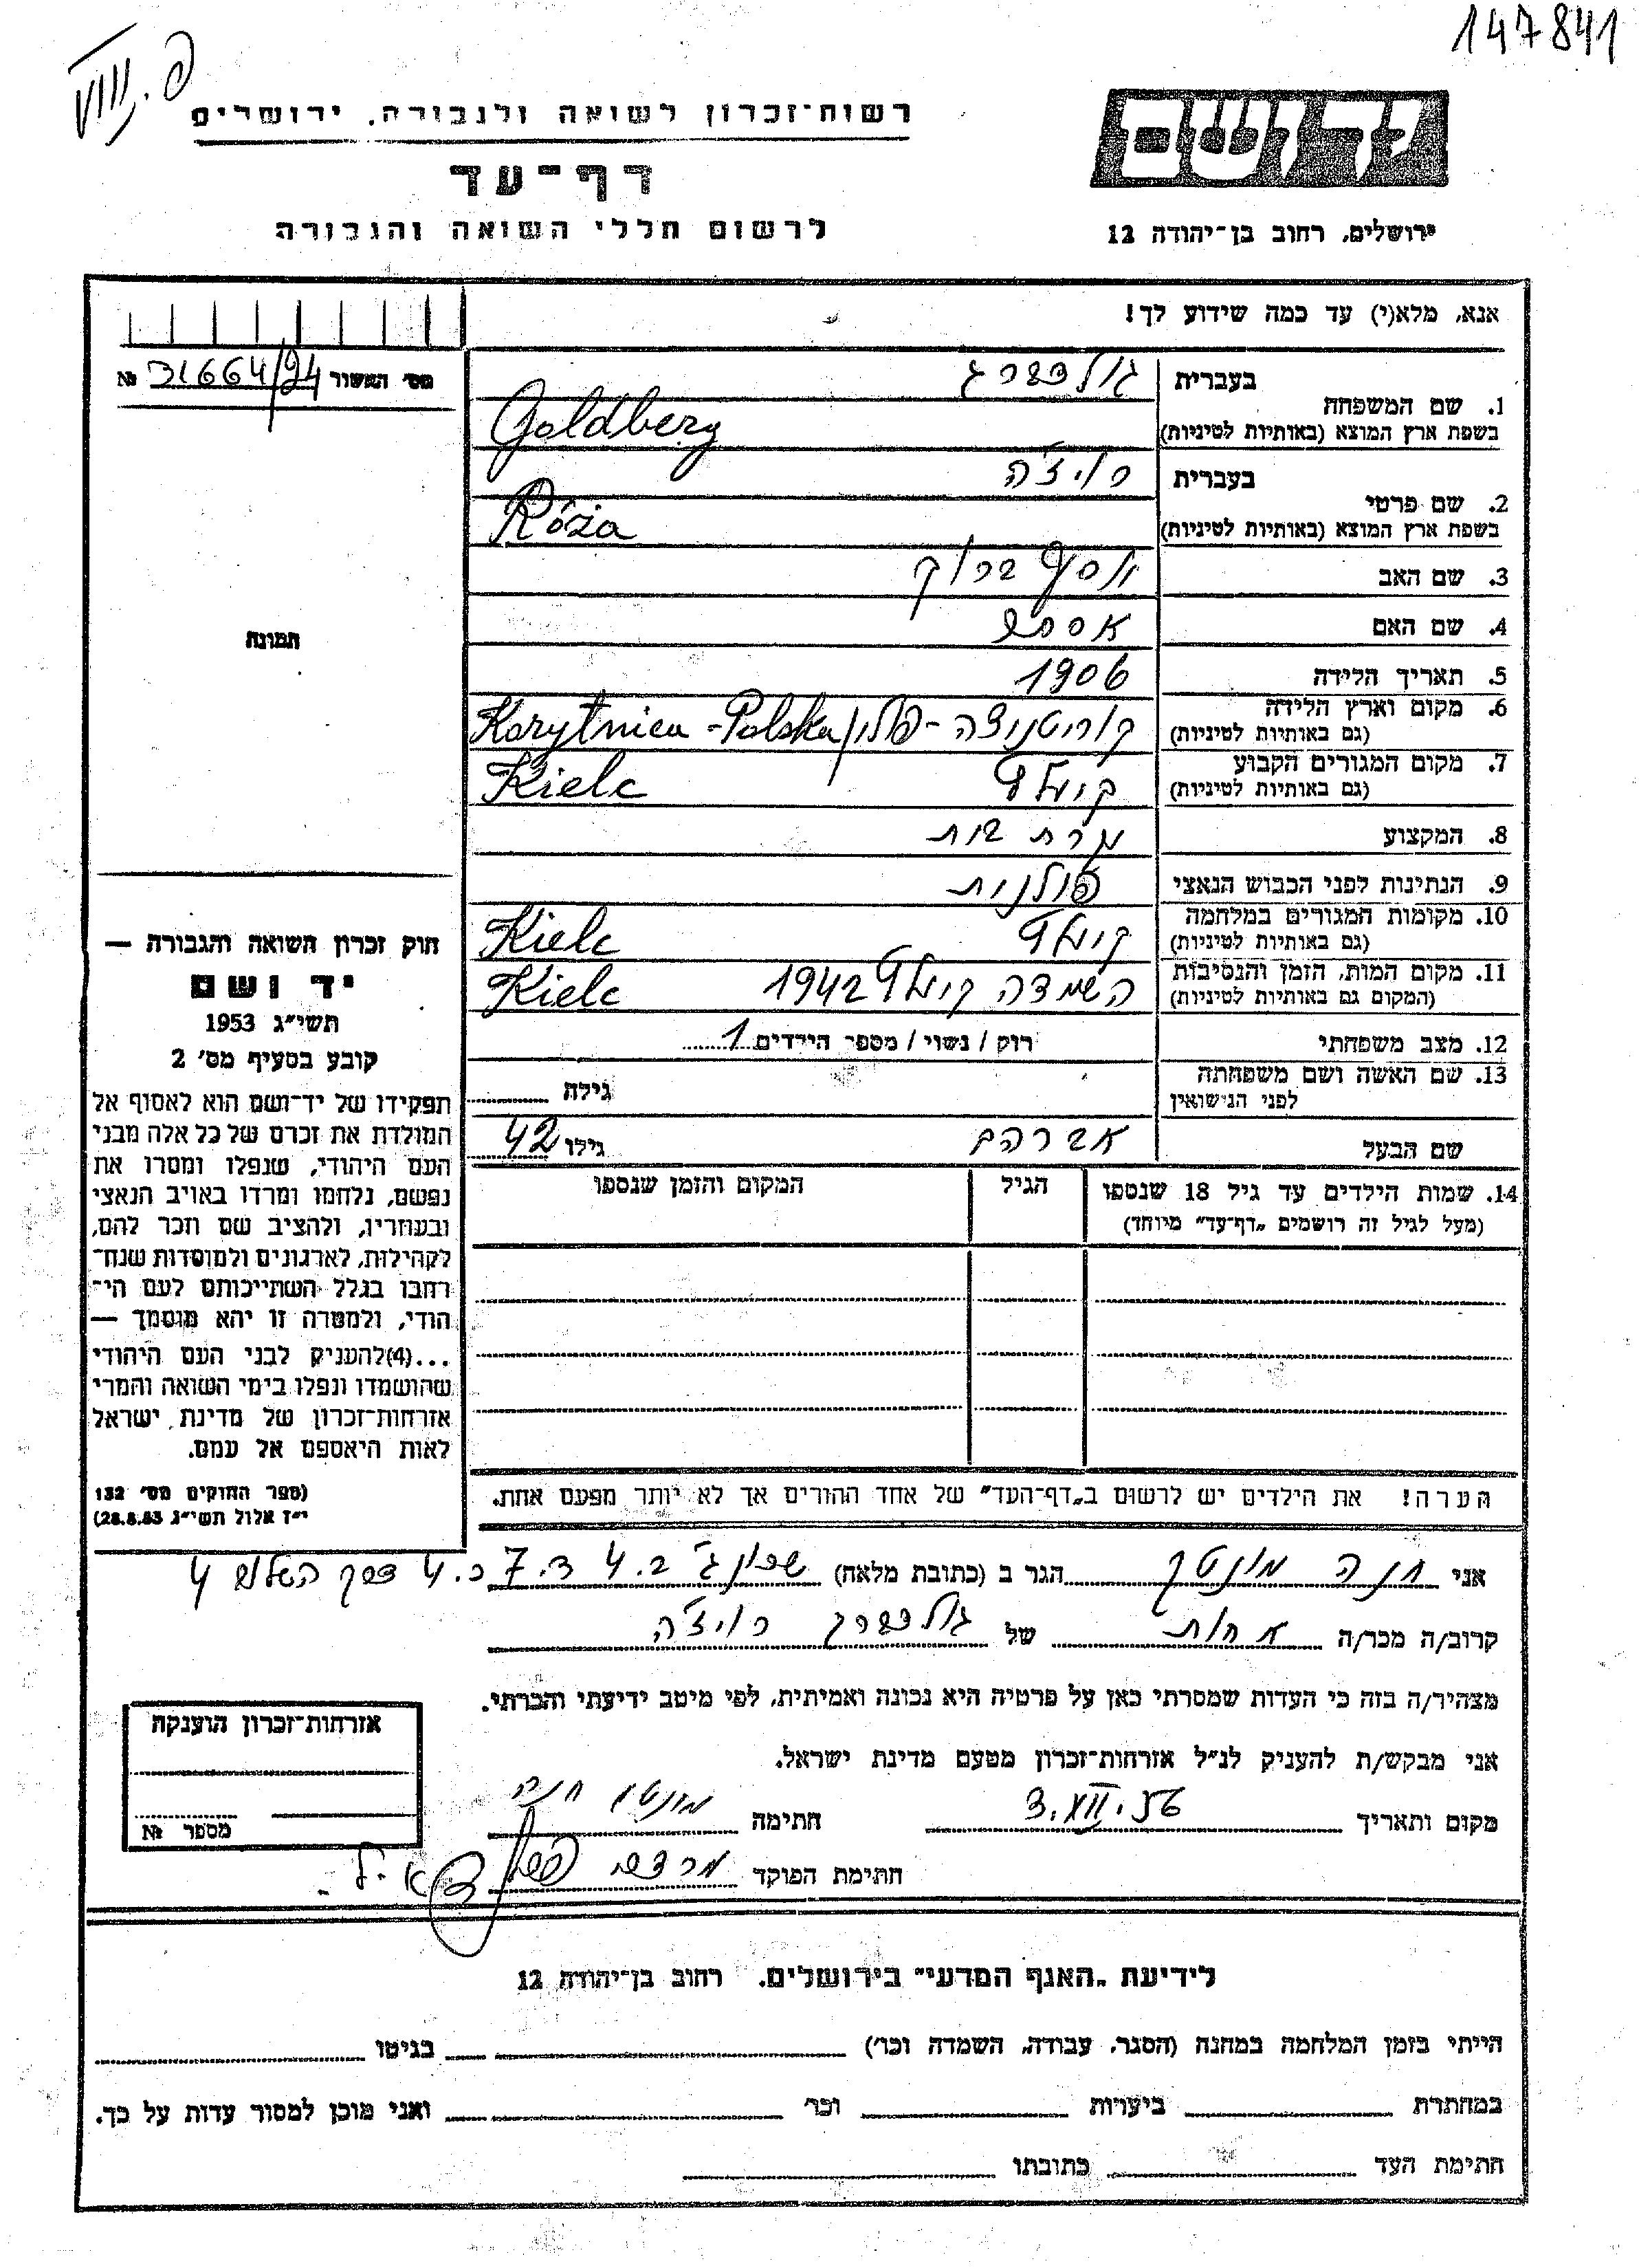 147841
פ. VIII
רשות־זכרון לשואה ולגבורה, ירושלים
דף־עד
לרשום חללי השואה והגבורה
יד ושם
ירושלים, רחוב בן־יהודה 12
אנא, מלא(י) עד כמה שידוע לך!
מס׳ האשור 31664/94 №
1. שם המשפחה
בעברית גולדברג
בשפת ארץ המוצא (באותיות לטיניות) Goldberg
2. שם פרטי
בעברית רויז'ה
בשפת ארץ המוצא (באותיות לטיניות) Róża
3. שם האב יוסף ברוך
4. שם האם אסתר
5. תאריך הלידה 1906
6. מקום וארץ הלידה קוריטניצה - פולין / Korytnica - Polska
(גם באותיות לטיניות)
7. מקום המגורים הקבוע קיעלץ Kielc
(גם באותיות לטיניות)
8. המקצוע עקרת בית
9. הנתינות לפני הכבוש הנאצי פולנית
10. מקומות המגורים במלחמה קיעלץ Kielc
(גם באותיות לטיניות)
11. מקום המות, הזמן והנסיבות השמדה קיעלץ 1942 Kielc
(המקום גם באותיות לטיניות)
12. מצב משפחתי רוק / נשוי / מספר הילדים 1
13. שם האשה ושם משפחתה
לפני הנישואין גילה
שם הבעל אברהם גילו 42
14. שמות הילדים עד גיל 18 שנספו הגיל המקום והזמן שנספו
(מעל לגיל זה רושמים „דף־עד" מיוחד)
הערה! את הילדים יש לרשום ב„דף־העד" של אחד ההורים אך לא יותר מפעם אחת.
תמונה
חוק זכרון השואה והגבורה —
יד ושם
תשי"ג 1953
קובע בסעיף מס׳ 2
תפקידו של יד־ושם הוא לאסוף אל
המולדת את זכרם של כל אלה מבני
העם היהודי, שנפלו ומסרו את
נפשם, נלחמו ומרדו באויב הנאצי
ובעוזריו, ולהציב שם וזכר להם,
לקהילות, לארגונים ולמוסדות שנח־
רבו בגלל השתייכותם לעם הי־
הודי, ולמטרה זו יהא מוסמך —
...(4) להעניק לבני העם היהודי
שהושמדו ונפלו בימי השואה והמרי
אזרחות־זכרון של מדינת ישראל
לאות היאספם אל עמם.
(ספר החוקים מס׳ 132
י"ז אלול תשי"ג 28.8.53)
אני חנה מונטק הגר ב (כתובת מלאה) שכון ג' ב. 4 ד. 7 כ. 4 דרך השלום 4
קרוב/ה מכר/ה אחות של גולדברג רויז'ה
מצהיר/ה בזה כי העדות שמסרתי כאן על פרטיה היא נכונה ואמיתית, לפי מיטב ידיעתי והכרתי.
אני מבקש/ת להעניק לנ"ל אזרחות־זכרון מטעם מדינת ישראל.
מקום ותאריך חתימה מונטק חנה
חתימת הפוקד
אזרחות־זכרון הוענקה
מספר №
לידיעת „האגף המדעי" בירושלים. רחוב בן־יהודה 12
הייתי בזמן המלחמה במחנה (הסגר, עבודה, השמדה וכו׳) בגיטו
במחתרת ביערות וכו׳ ואני מוכן למסור עדות על כך.
חתימת העד כתובתו